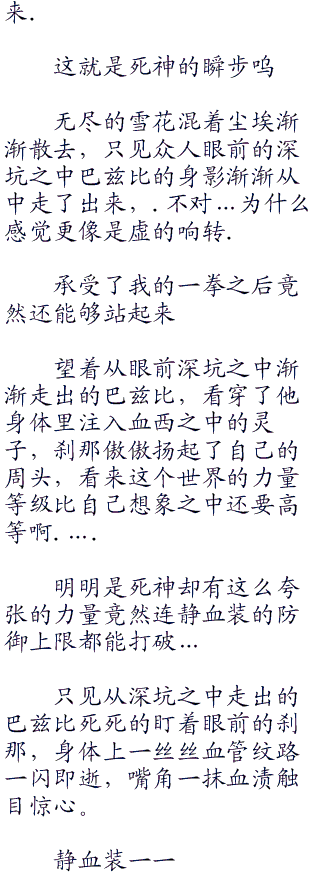 来.
这就是死神的瞬步呜
无尽的雪花混着尘埃渐
渐散去，只见众人眼前的深
坑之中巴兹比的身影渐渐从
中走了出来，.不对...为什么
感觉更像是虚的响转.
承受了我的一拳之后竟
然还能够站起来
望着从眼前深坑之中渐
渐走出的巴兹比，看穿了他
身体里注入血西之中的灵
子，刹那傲傲扬起了自己的
周头，看来这个世界的力量
等级比自己想象之中还要高
等啊. ....
明明是死神却有这么夸
张的力量竟然连静血装的防
御上限都能打破...
只见从深坑之中走出的
巴兹比死死的盯着眼前的刹
那，身体上一丝丝血管纹路
一闪即逝，嘴角一抹血渍触
目惊心。
静血装一一